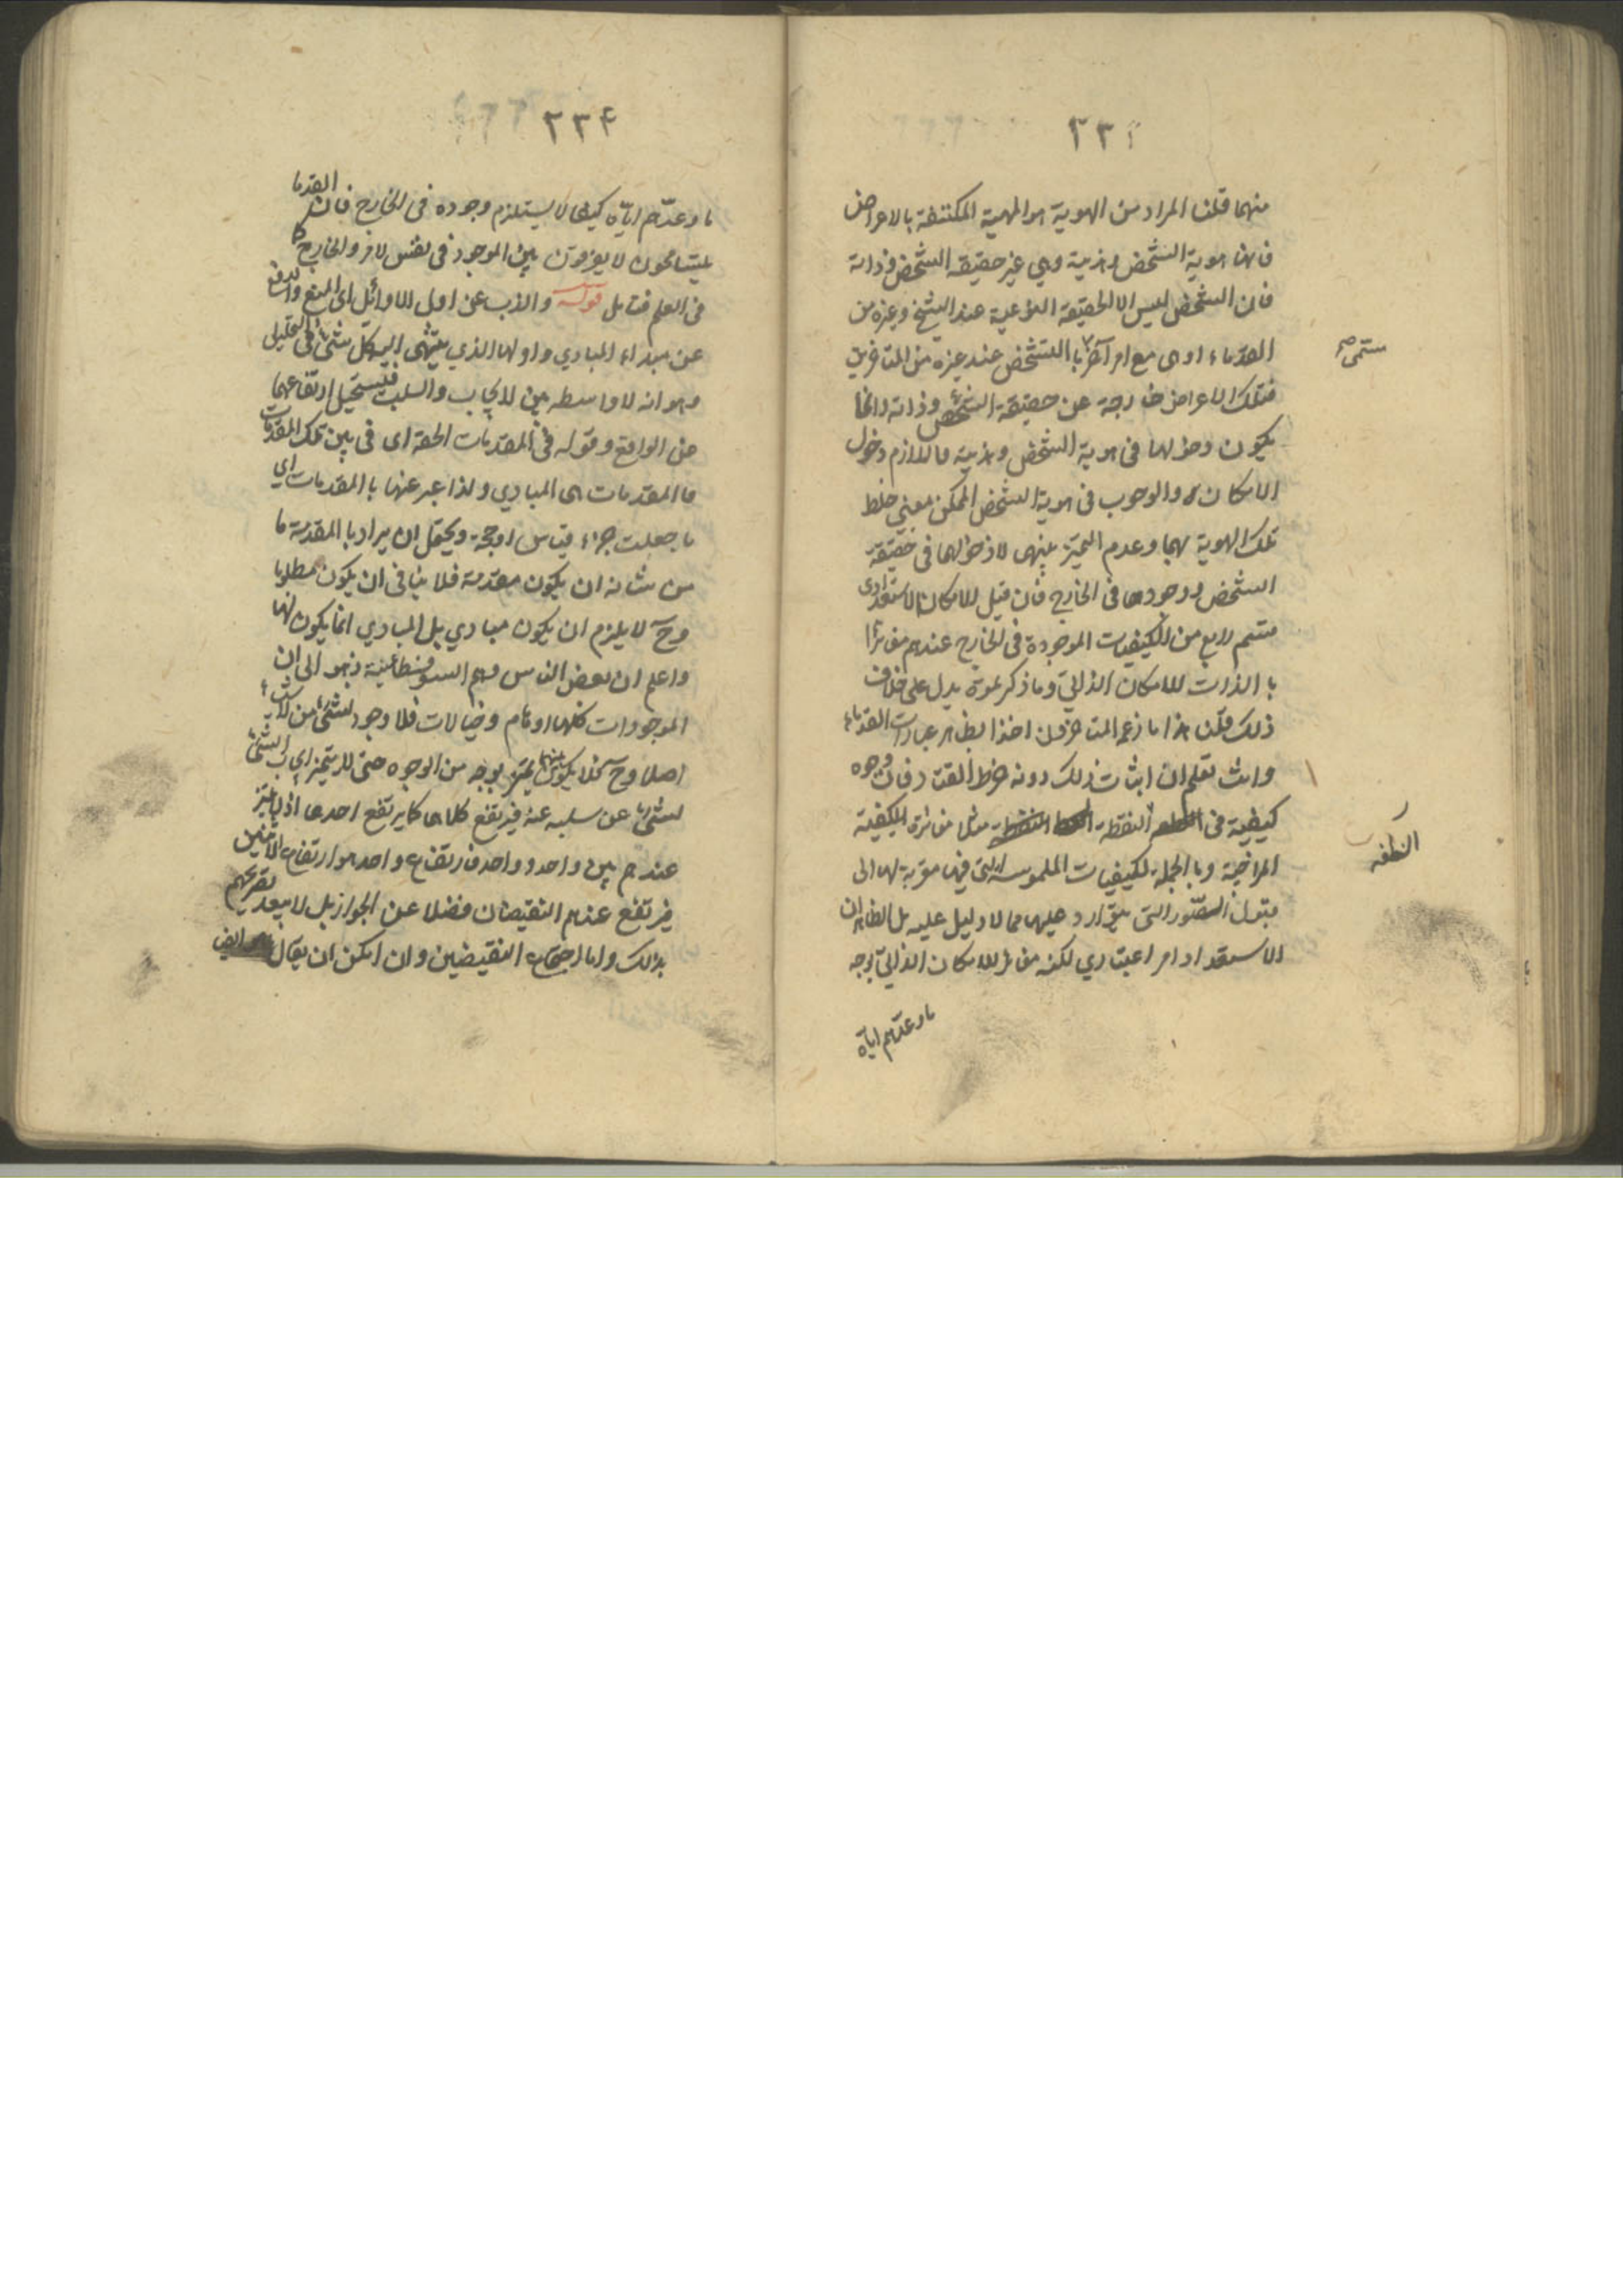 ٢٣٣
منهما قلنا المراد من الهوية هو المهية المكتنفة بالاعراض
فانها هوية الشخص وهذيته وهي غير حقيقة الشخص وذاته
فان الشخص ليس الا الحقيقة النوعية عند الشيخ وغيره من
القدماء او هى مع امر آخر با التشخص عند غيره من المتاخرين
يسمى صح
فتلك الاعراض خارجة عن حقيقة الشخص وذاته وانما
يكون دخولها فى هوية الشخص وهذيته فاللازم دخول
الامكان والوجوب فى هوية الشخص الممكن بمعنى خلط
تلك الهوية بهما وعدم التميز بينهما لا دخولهما فى حقيقة
الشخص ووجودهما فى الخارج فان قيل الامكان الاستعدادى
قسم رابع من الكيفيات الموجودة فى الخارج عندهم مغايرا
با الذات للامكان الذاتى وما ذكرتموه يدل على خلاف
ذلك قلنا هذا ما زعمه المتاخرون اخذا بظاهر عبارات القدماء
وانت تعلم ان اثبات ذلك دونه خرط القتاد فان وجوه
كيفية فى النقطة مثلا مغائرة للكيفية
النطفه
المزاجية وبا الجملة لكيفيات الملموسة التى فيها مقربة لها الى
قبول الصور التى يتوارد عليها مما لا دليل عليه بل الظاهر ان
الاستعداد امر اعتبارى لكنه مغائر للامكان الذاتى بوجه
ما وعدهم اياه
٢٣٤
ما وعدهم اياه كيفا لا يستلزم وجوده فى الخارج فان القدما
يتسامحون لا يفرقون بين الموجود فى نفس الامر والخارج كما
فى العلم فتامل قوله والذب عن اول الاوائل اى المنع والدفع
عن مبداء المبادي واولها الذي ينتهى اليه كل شىء فى التحليل
وهو انه لا واسطه بين الايجاب والسلب فيستحيل ارتفاعهما
عن الواقع وقوله فى المقدمات الحقة اى فى بين تلك المقدمات
فا المقدمات هى المبادي ولذا عبر عنها با المقدمات اي
ما جعلت جزاء قياس او حجة ويحتمل ان يراد با المقدمة ما
من شانه ان يكون مقدمة فلا ينافى ان يكون مطلوبا
وح لا يلزم ان يكون مبادي بل المبادي انما يكون لها
واعلم ان بعض الناس وهم السوفسطائية ذهبوا الى ان
الموجودات كلها اوهام وخيالات فلا وجود لشئ من الاشياء
اصلا وح فلا يكون بينهما تميز بوجه من الوجوه حتى لا يتميز ايجاب الشئ
لشئ عن سلبه عنه فيرتفع كلاهما كما يرتفع احدهما اذ لا تميز
عندهم بين واحد وواحد فارتفاع واحد هو ارتفاع الاثنين
فيرتفع عندهم النقيضان فضلا عن الجواز بل لا يبعد تصريحهم
بذلك واما اجتماع النقيضين وان امكن ان يقال